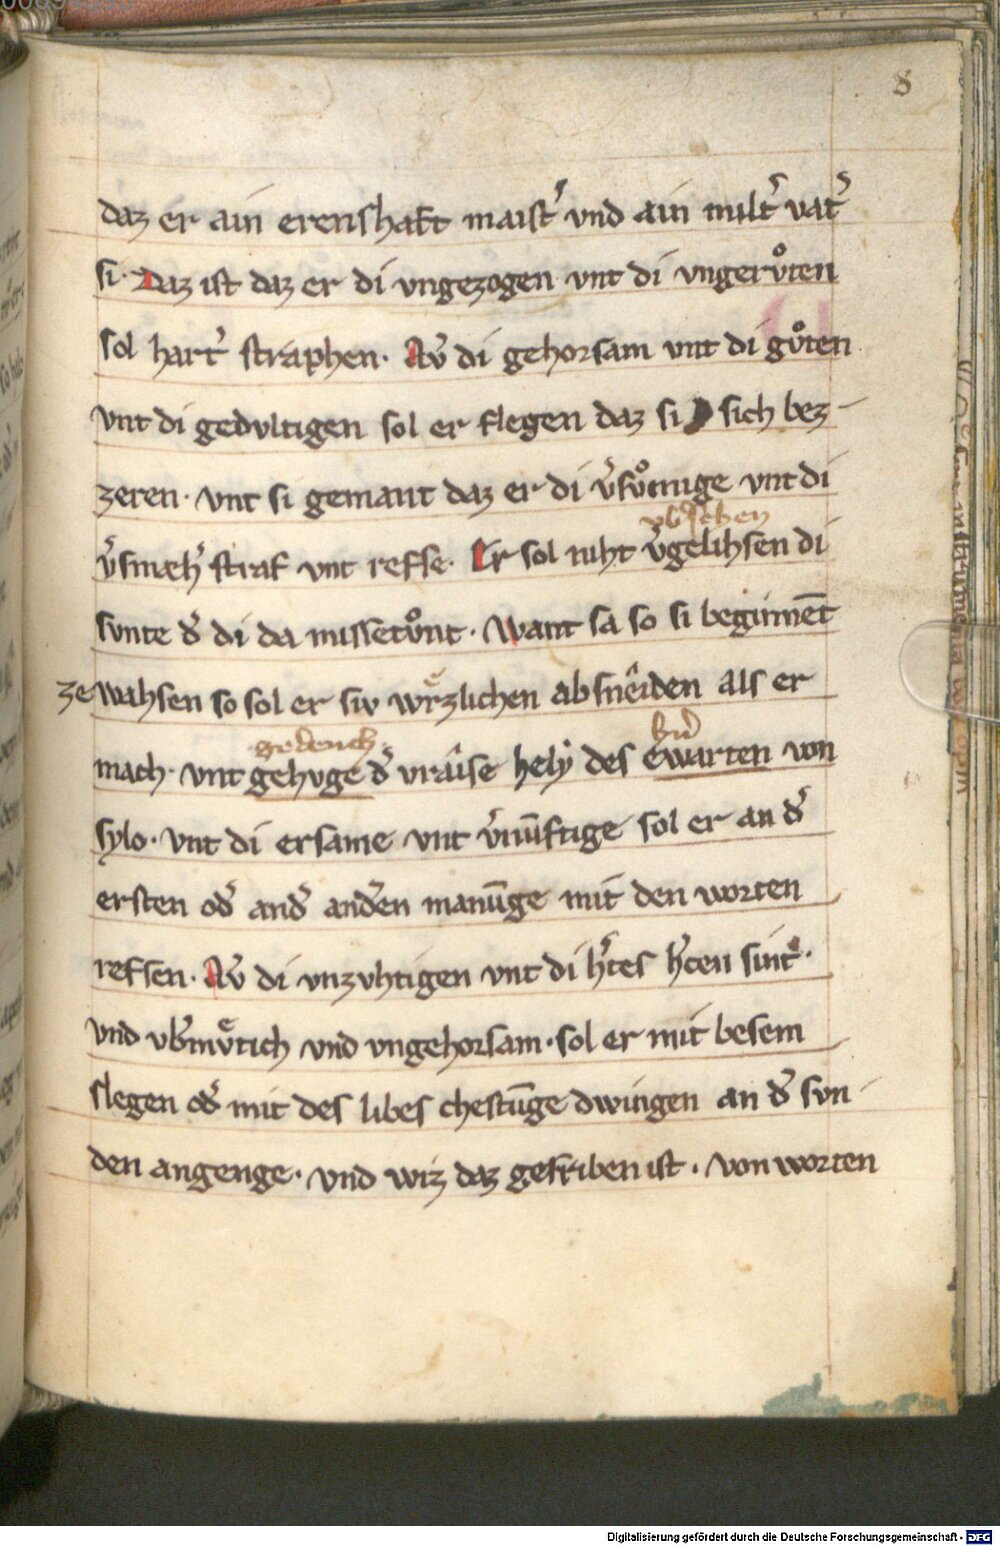 8
daz er ain erenshaft maist̕ vnd ain milt̕ vat̕
si. Daz ist daz er di vngezogen vnt di vngerv̊ten
sol hart̕ straphen. Av̕ di gehorsam vnt di gv̊ten
vnt di gedvltigen sol er flegen daz si sich bez-
zeren. vnt si gemant daz er di v̕sv̊mige vnt di
v̕smæh̕ straf vnt refse. Er sol niht v̕gelihsen di
svnte d̕ di da missetv̊nt. Want sa so si beginnēt
ze wahsen so sol er siv wrͤzlichen absnêiden als er
gedench
mach. vnt gehvge d̕ vrâise hely des ewarten von
sylo. vnt di ersame vnt v̕nūftige sol er an d̕
ersten od̕ and̕ and̕en manūge mit den worten
refsen. Av̕ di vnzvhtigen vnt di h̕tes h̕cen sint.
vnd vb̕mvͤtich vnd vngehorsam. sol er mit besem
slegen od̕ mit des libes chestūge dwingen an d̕ svn
den angenge. vnd wiz daz geskriben ist. von worten
Digitalisierung gefördert durch die Deutsche Forschungsgemeinschaft - DFG